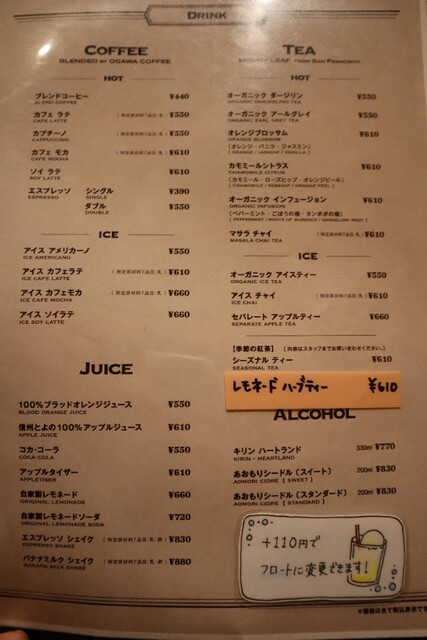 DRINK
COFFEE
BLENDED BY OGAWA COFFEE
HOT
ブレンドコーヒー ¥440
BLEND COFFEE
カフェ ラテ (特定原材料7品目:乳) ¥550
CAFE LATTE
カプチーノ (特定原材料7品目:乳) ¥550
CAPPUCCINO
カフェ モカ (特定原材料7品目:乳) ¥610
CAFE MOCHA
ソイ ラテ ¥610
SOY LATTE
エスプレッソ シングル ¥390
ESPRESSO SINGLE
ダブル ¥550
DOUBLE
ICE
アイス アメリカーノ ¥550
ICE AMERICANO
アイス カフェラテ (特定原材料7品目:乳) ¥610
ICE CAFE LATTE
アイス カフェモカ (特定原材料7品目:乳) ¥660
ICE CAFE MOCHA
アイス ソイラテ ¥660
ICE SOY LATTE
JUICE
100%ブラッドオレンジジュース ¥550
BLOOD ORANGE JUICE
信州とよの100%アップルジュース ¥610
APPLE JUICE
コカ·コーラ ¥550
COCA-COLA
アップルタイザー ¥610
APPLETISER
自家製レモネード ¥660
ORIGINAL LEMONADE
自家製レモネードソーダ ¥720
ORIGINAL LEMONADE SODA
エスプレッソ シェイク (特定原材料7品目:乳·卵) ¥830
ESPRESSO SHAKE
バナナミルク シェイク (特定原材料7品目:乳·卵) ¥880
BANANA MILK SHAKE
TEA
MIGHTY LEAF, FROM SAN FRANCISCO
HOT
オーガニック ダージリン ¥550
ORGANIC DARJEELING TEA
オーガニック アールグレイ ¥550
ORGANIC EARL GREY TEA
オレンジブロッサム ¥610
ORANGE BLOSSOM
(オレンジ·バニラ·ジャスミン)
(ORANGE / JASMINE / VANILLA)
カモミールシトラス ¥610
CHAMOMILE CITRUS
(カモミール·ローズヒップ·オレンジピール)
(CHAMOMILE / ROSEHIP / ORANGE PEEL)
オーガニック インフュージョン ¥610
ORGANIC INFUSION
(ペパーミント·ごぼうの根·タンポポの根)
(PEPPERMINT / ROOTS OF BURDOCK / DANDELION ROOT)
マサラ チャイ (特定原材料7品目:乳) ¥610
MASALA CHAI TEA
ICE
オーガニック アイスティー ¥550
ORGANIC ICE TEA
アイス チャイ (特定原材料7品目:乳) ¥610
ICE CHAI
セパレート アップルティー ¥660
SEPARATE APPLE TEA
【季節の紅茶】(内容はスタッフまでお問い合わせください。)
シーズナル ティー ¥610
SEASONAL TEA
レモネード ハーブティー ¥610
ALCOHOL
キリン ハートランド 330ml ¥770
KIRIN - HEARTLAND
あおもりシードル(スイート) 200ml ¥830
AOMORI CIDRE [SWEET]
あおもりシードル(スタンダード) 200ml ¥830
AOMORI CIDRE [STANDARD]
+110円で
フロートに変更できます!
※価格は全て税込表示です